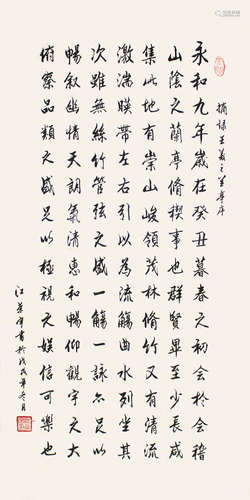 摘錄王羲之蘭亭序
永和九年歲在癸丑暮春之初會於會稽
山陰之蘭亭脩稧事也群賢畢至少長咸
集此地有崇山峻領茂林脩竹又有清流
激湍暎帶左右引以為流觴曲水列坐其
次雖無絲竹管弦之盛一觴一詠亦足以
暢叙幽情天朗氣清惠和暢仰觀宇之大
俯察品類之盛足以極視之娛信可樂也
江書於戊戌年冬月